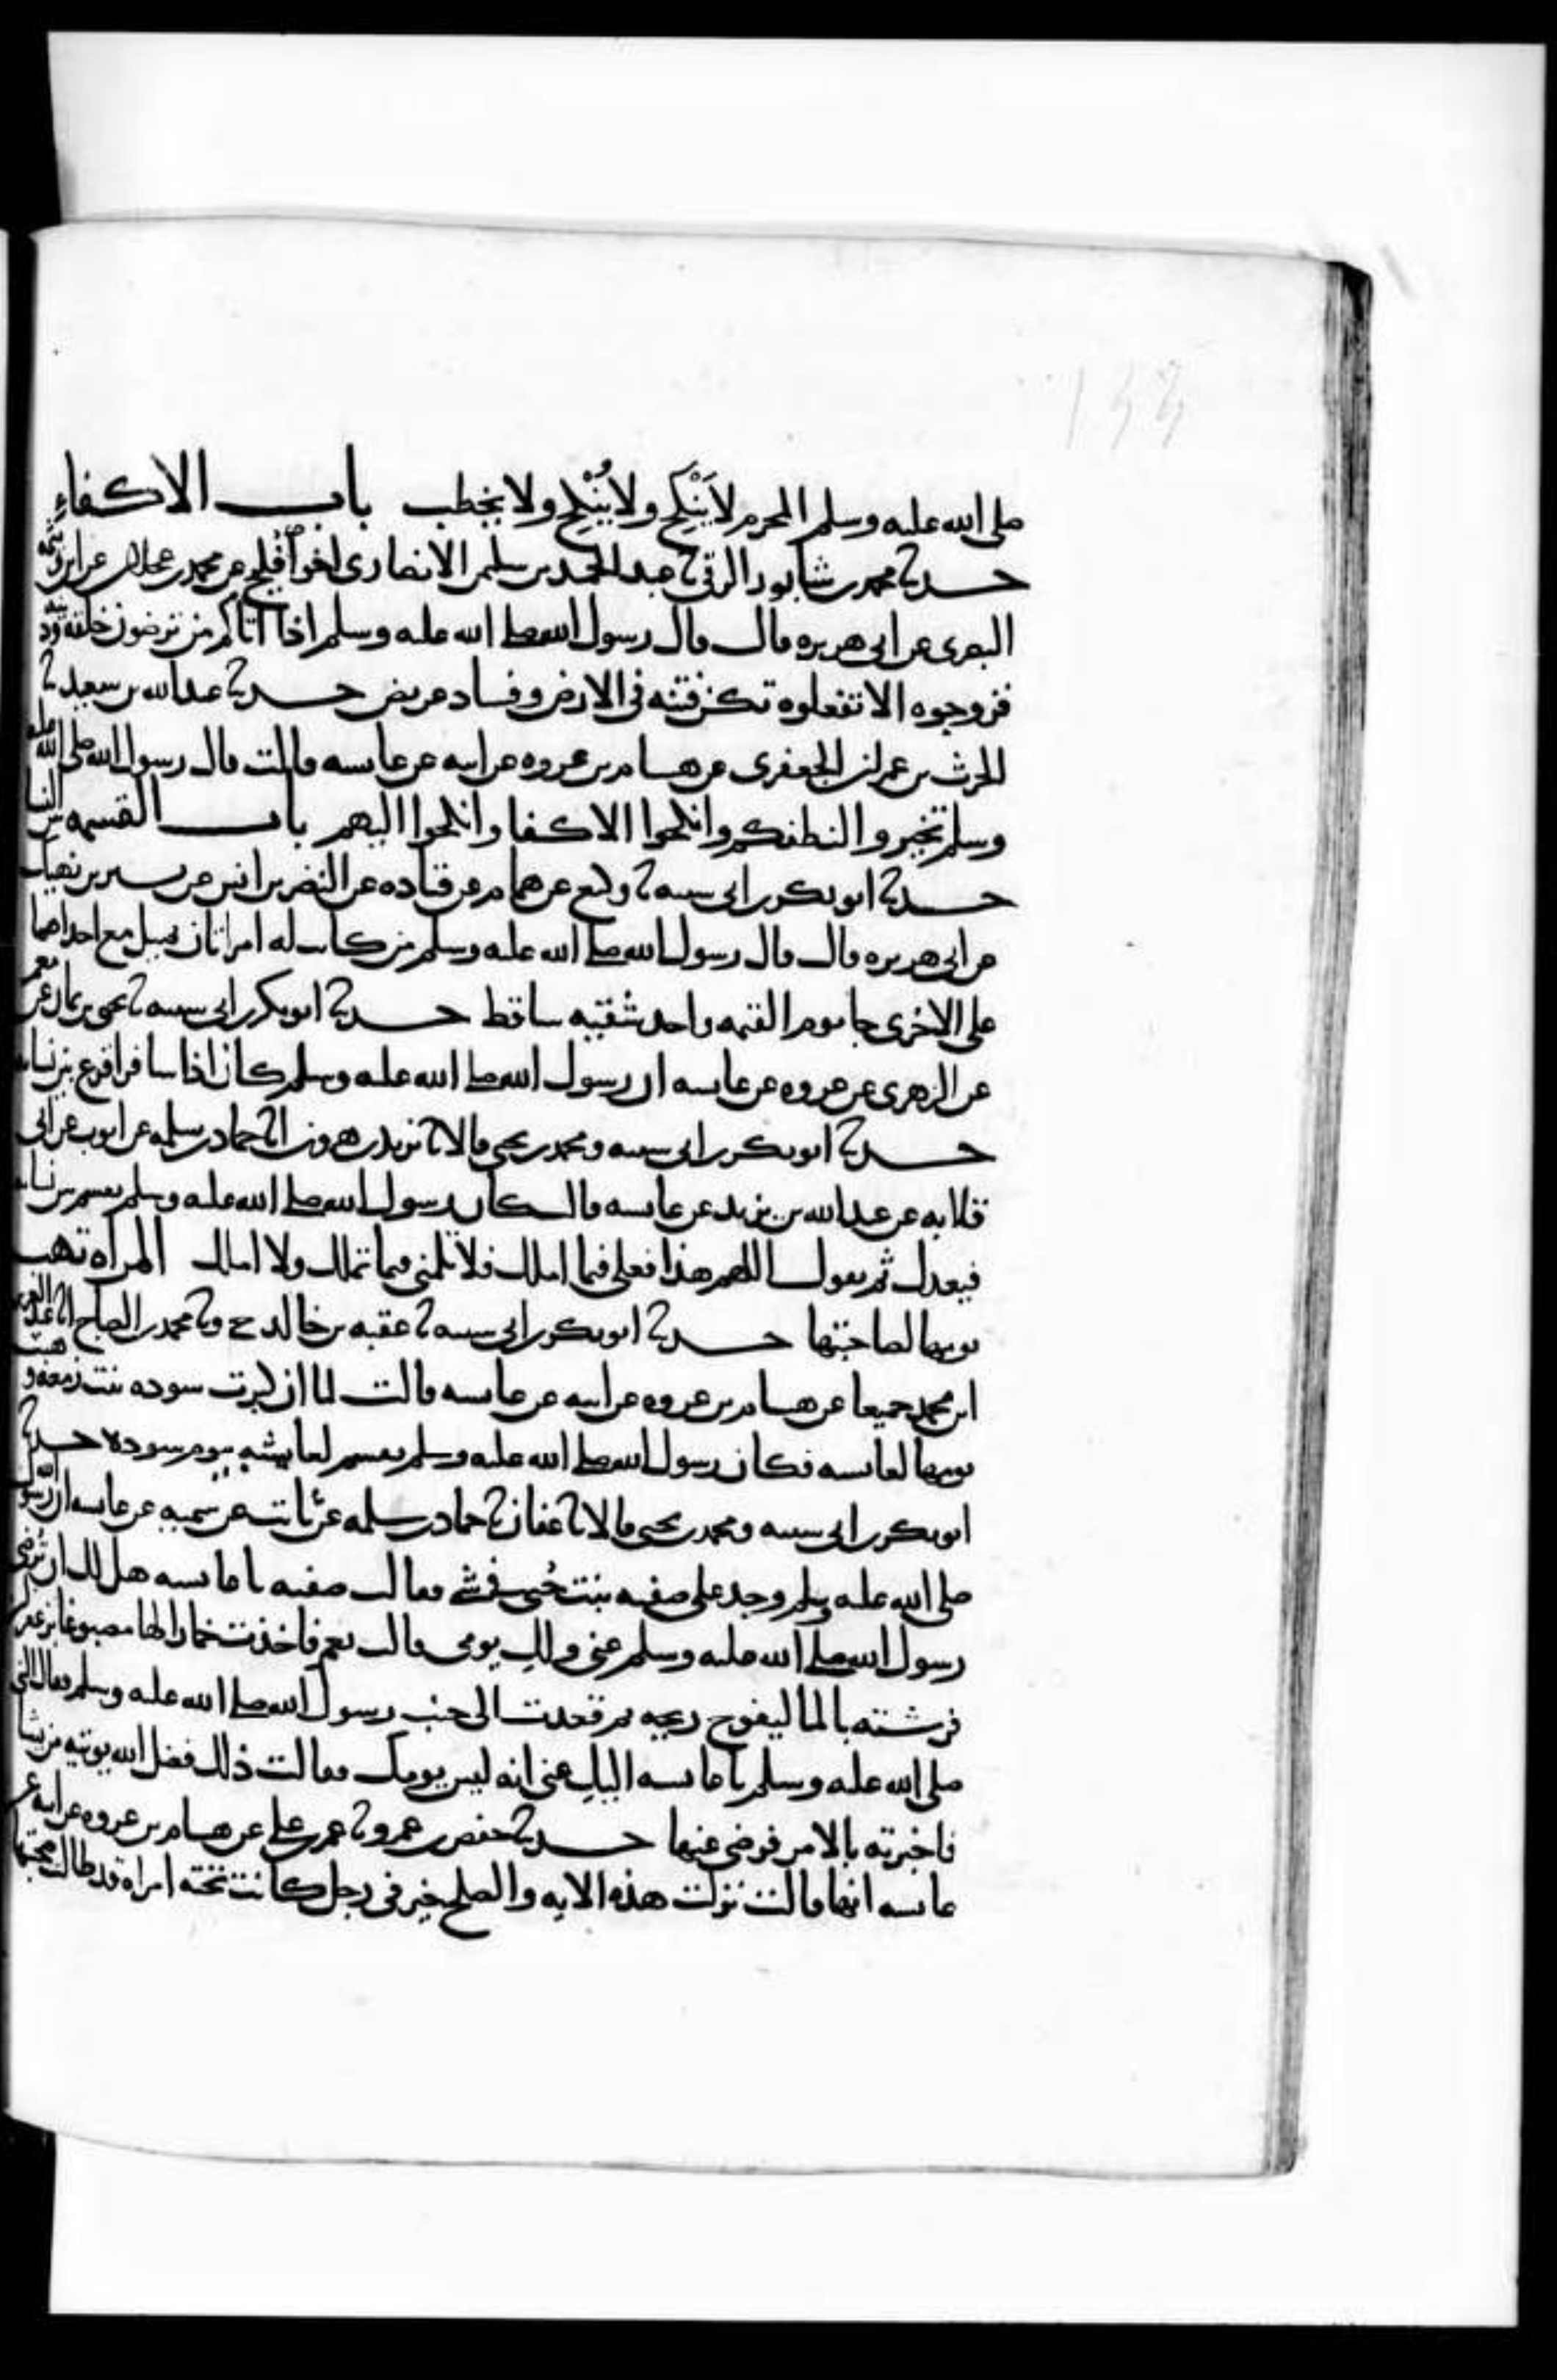 صلى الله عليه وسلم المحرم لا يَنْكِح ولا يُنْكِح ولا يخطب باب الاكفاءِ
حدثنا محمد بن شابور الرقي ثنا عبد الحميد بن سليمن الانصاري اخو فُليح عن محمد بن عجلان عن ابن وثيمة
البصري عن ابي هريره قال قال رسول الله صلى الله عليه وسلم اذا اتاكم من ترضون خلقه ودينه
فزوجوه الا تفعلوه تكن فتنه في الارض وفساد عريض حدثنا عبد الله بن سعيد ثنا
الحرث بن عمران الجعفري عن هشام بن عروه عن ابيه عن عايشه قالت قال رسول الله صلى الله عليه
وسلم تخيروا لنطفكم وانكحوا الاكفا وانكحوا اليهم باب القسمه بين النسا
حدثنا ابو بكر بن ابي شيبه ثنا وكيع عن همام عن قتاده عن النضر بن انس عن بشير بن نهيك
عن ابي هريره قال قال رسول الله صلى الله عليه وسلم من كانت له امراتان يميل مع احداهما
على الاخرى جا يوم القيمه واحد شقيه ساقط حدثنا ابو بكر بن ابي شيبه ثنا يحيى بن يمان عن معمر
عن الزهري عن عروه عن عايشه ان رسول الله صلى الله عليه وسلم كان اذا سافر اقرع بين نسايه
حدثنا ابو بكر بن ابي شيبه ومحمد بن يحيى قالا ثنا يزيد بن هرون انا حماد بن سلمه عن ايوب عن ابي
قلابه عن عبد الله بن يزيد عن عايشه قالت كان رسول الله صلى الله عليه وسلم يقسم بين نسايه
فيعدل ثم يقول اللهم هذا فعلي فيما املك فلا تلمني فيما تملك ولا املك المراه تهب
يومها لصاحبتها حدثنا ابو بكر بن ابي شيبه ثنا عقبه بن خالد ح وثنا محمد بن الصباح انا عبد العزيز
ابن محمد جميعا عن هشام بن عروه عن ابيه عن عايشه قالت لما ان كبرت سوده بنت زمعه وهبت
يومها لعايشه فكان رسول الله صلى الله عليه وسلم يقسم لعايشه بيوم سوده حدثنا
ابو بكر بن ابي شيبه ومحمد بن يحيى قالا ثنا عفان ثنا حماد بن سلمه عن ثابت عن سميه عن عايشه ان رسول الله
صلى الله عليه وسلم وجد على صفيه بنت حُيي في شي فقالت صفيه يا عايشه هل لك ان تُرضي
رسول الله صلى الله عليه وسلم عني ولكِ يومي قالت نعم فاخذت خمارا لها مصبوغا بزعفران
فرشته بالما ليفوح ريحه ثم قعدت الى جنب رسول الله صلى الله عليه وسلم فقال النبي
صلى الله عليه وسلم يا عايشه اليكِ عني انه ليس يومك فقالت ذلك فضل الله يوتيه من يشا
فاخبرته بالامر فرضي عنها حدثنا حفص بن عمرو ثنا عمر بن علي عن هشام بن عروه عن ابيه عن
عايشه انها قالت نزلت هذه الايه والصلح خير في رجل كانت تحته امراه قد طالت صحبتها